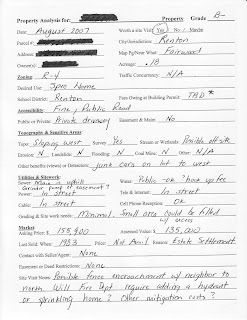 Property Analysis for: Property Grade B-
Date: August 2007 Worth a Site Visit Yes / No / Maybe
Parcel #: City/Jurisdiction: Renton
Parcel #: Map Pg/Near What: Fairwood
Address: Acreage: .18
Owner(s): Traffic Concurrency: N/A
Zoning: R-4
Desired Use: Spec Home
School District: Renton Fees Owing at Building Permit: TBD *
Accessibility: Fine, Public Road
Public or Private: Private driveway Easement & Maint: No
Topography & Sensitive Areas:
Topo: Sloping west Survey: Yes Stream or Wetlands: Possible off-site
Erosion: N Landslide: N Flooding: N Coal Mine: N Other: N/A
Other benefits (views) or Detractors: junk cars on lot to west
Utilities & Sitework:
Sewer: Main is uphill Water: Public - ok? hookup fee
Power: In street Tele & Internet: In street
Cable: In street Cell Phone Reception: OK
Grading & Site work needs: Minimal. Small area could be filled
Market:
Asking Price: $ 155,900 Assessed Value: $ 135,000
Last Sold: When: 1983 Price: Not Avail Reason: Estate Settlement
Contact with Seller/Agent: None
Easement or Deed Restrictions? None
Site Visit Notes: Possible fence encroachment w/ neighbor to
north. Will Fire Dept. require adding a hydrant
or sprinkling home? Other mitigation costs?